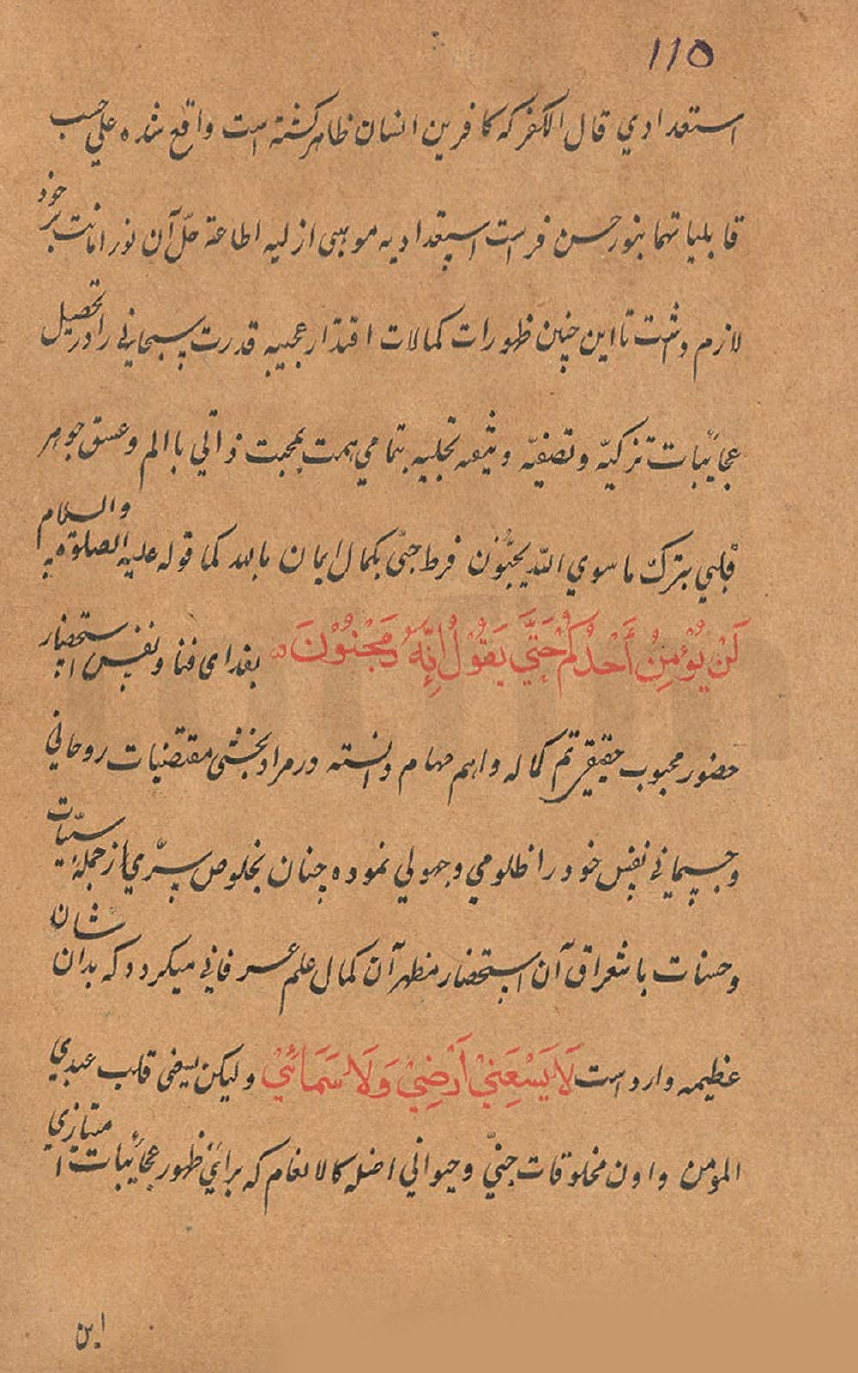 ١١٥
استعدادي قال الكفر كه كافرين انسان ظاهر كشته است واقع شده علي حسب
قابلياتهما بنور حسن فراست استعداديه موهبى ازليه اطاعة حل آن نور امانت بر خود
لازم داشت تا اين چنين ظهورات كمالات اقتدار عجيبه قدرت سبحانيى را در تحصيل
عجائبات تزكيّه وتصفيّه و تجليه بتمامي همت بمحبت ذاتي با الم وعشق جوهر
قلبي بترك ما سوي اللّه يحبّون فرط حبّى بكمال ايمان بالله كما قوله عليه الصلوة والسلام
لَنْ يُؤْمِنُ أَحَدُكُمْ حَتَّي يَقُوْلُ إِنَّهُ مَجْنُوْنَ بغداى فنا ونفس استحضار
حضور محبوب حقيقي تم كماله واهم مهام دانسته در مراد بخشى مقتضيات روحاني
وجسماني نفس خود را ظلومي وجهولي نموده چنان بخلوص سرّي از جملهٔ سيّيات
وحسنات آن استحضار مظهر آن كمال علم عرفاني ميكردد كه بدان شان
عظيمه وارد است لَا يَسْعِنِيْ أَرْضِيْ وَلَا سَمَائِيْ وليكن يسعنى قلب عبدي
المؤمن واون مخلوقات جنيّ وحيواني اضله كالانعام كه برائي ظهور عجائبات امتيازي
اين